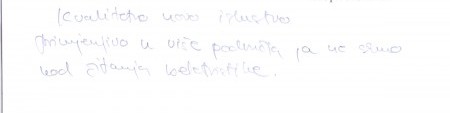 Kvalitetno novo iskustvo
primjenjivo u više područja pa ne samo
kod čitanja beletristike.